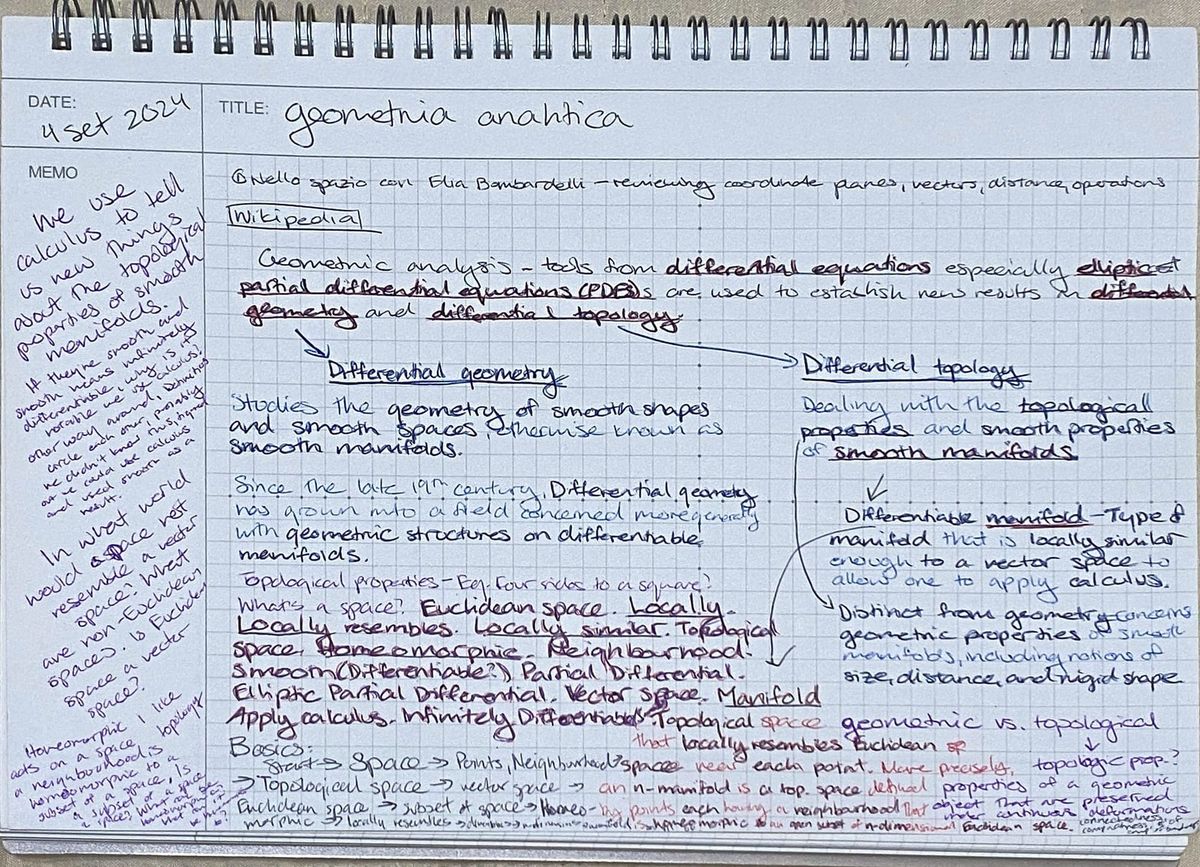 DATE:
4 set 2024
TITLE: geometria analitica
MEMO
We use
calculus to tell
us new things
about the topological
properties of smooth
manifolds.
If they're smooth and
smooth means infinitely
differentiable, why is it
notable we use calculus?
other way around, Definitions
circle each other, probably
we didn't know this, figured
out we could use calculus
and used smooth as a
result.
In what world
would a space not
resemble a vector
space? What
are non-Euclidean
spaces. Is Euclidean
space a vector
space?
Homeomorphic I like
acts on a space
a neighbourhood is topology
homeomorphic to a
subset of a space. Is
a subset of a space
① Nello spazio con Elia Bombardelli - reviewing coordinate planes, vectors, distance, operations
Wikipedia
Geometric analysis - tools from differential equations especially elliptic
partial differential equations (PDEs) are used to establish new results in differential
geometry and differential topology.
Differential geometry
Studies the geometry of smooth shapes
and smooth spaces, otherwise known as
smooth manifolds.
Since the late 19th century, Differential geometry
has grown into a field concerned more generally
with geometric structures on differentiable
manifolds.
Topological properties - Eg. four sides to a square?
What's a space? Euclidean space. Locally.
Locally resembles. Locally similar. Topological
space. Homeomorphic. Neighbourhood.
Smooth (Differentiable?) Partial Differential.
Elliptic Partial Differential. Vector Space. Manifold
Apply calculus. Infinitely Differentiable
Differential topology
Dealing with the topological
properties and smooth properties
of smooth manifolds
Differentiable manifold - Type of
manifold that is locally similar
enough to a vector space to
allow one to apply calculus.
Distinct from geometry-concerns
geometric properties of smooth
manifolds, including notions of
size, distance, and rigid shape
geometric vs. topological
topologic prop.?
properties of a geometric
object that are preserved
under continuous deformations
connectedness
Topological space
that locally resembles Euclidean sp
space near each point. More precisely,
an n-manifold is a top. space defined
points each having a neighbourhood that
is homeomorphic to an open subset of n-dimensional Euclidean space.
Basics:
Start → Space → Points, Neighbourhood?
→ Topological space → vector space →
Euclidean space → subset of space → Homeo-
morphic → locally resembles →